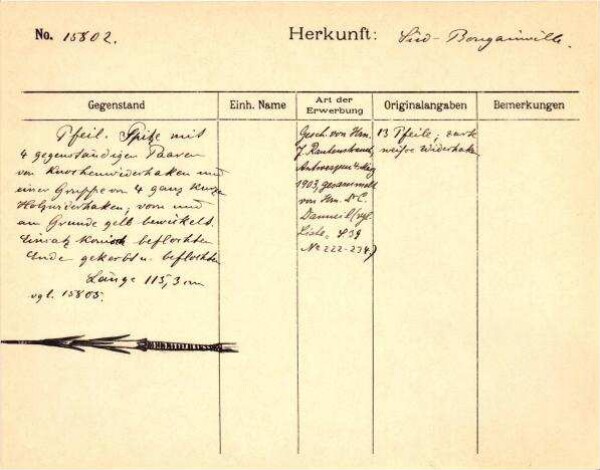 No. 15802.
Herkunft: Süd-Bougainville.
Gegenstand
Einh. Name
Art der Erwerbung
Originalangaben
Bemerkungen
Pfeil. Spitze mit
4 gegenständigen Paaren
von Knochenwiderhaken und
einer Gruppe von 4 ganz kurzen
Holzwiderhaken; vorn und
am Grunde gelb bewickelt.
Einsatz konisch beflochten
Ende gekerbt u. beflochten
Länge 115,3 cm
vgl. 15805.
Gesch. von Hrn.
J. Rautenstrauch,
Antwerpen
1903, gesammelt
von Hrn. Dr. C.
Liste. S 39
No 222-234)
13 Pfeile; stark
weisse Widerhaken